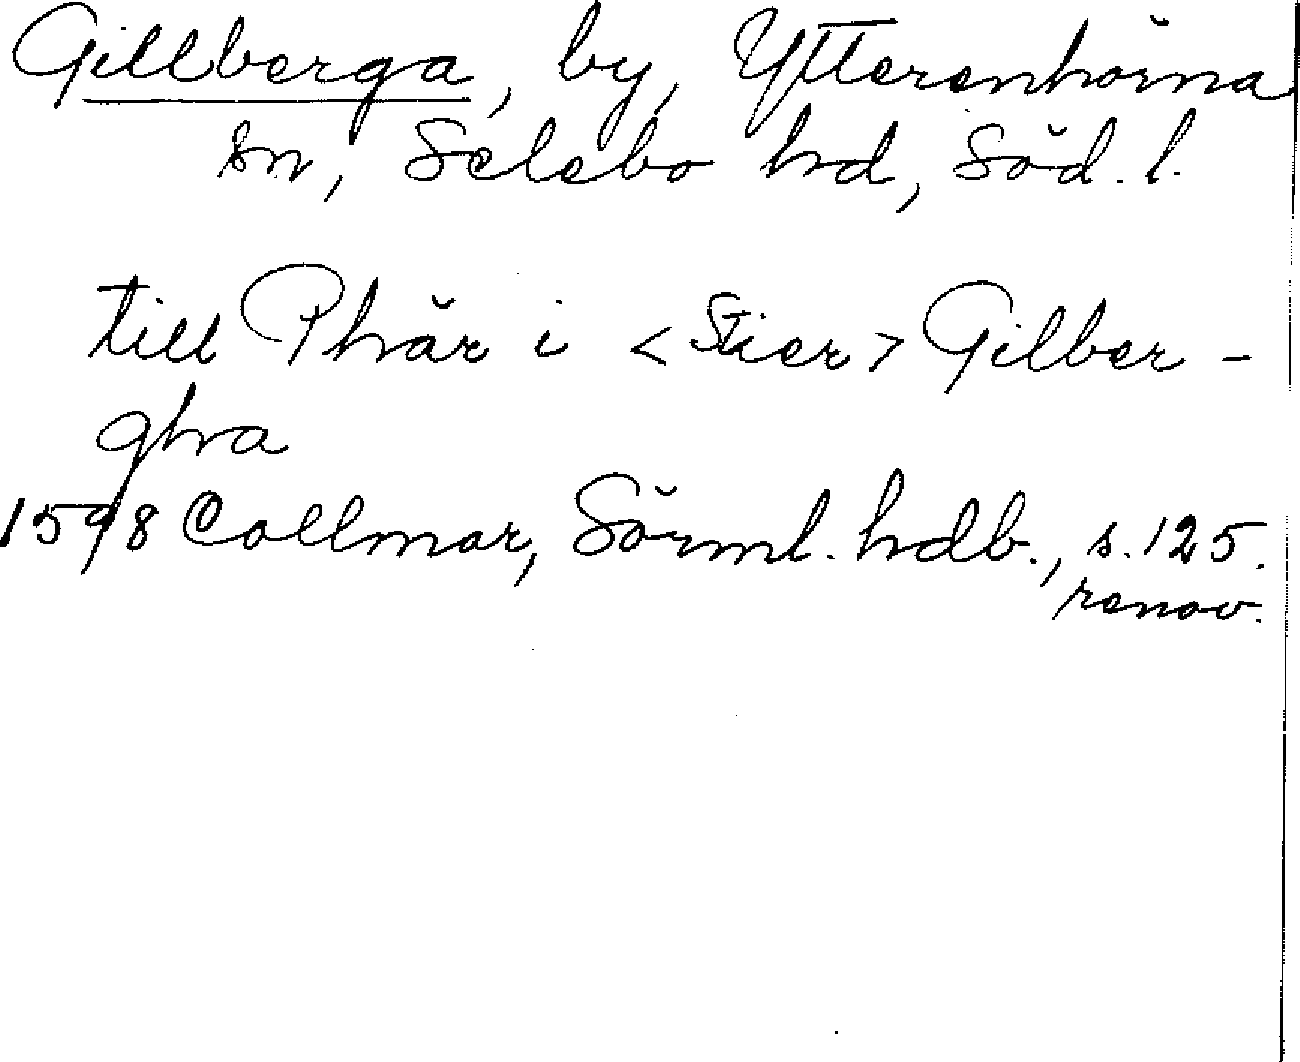 Gillberga, by, Ytterenhörna
sn, Selebo hd, Söd. l.
till Phär i <Stier> Gilber-
ghra
1598 Collmar, Sörml. hdb., s. 125.
renov.